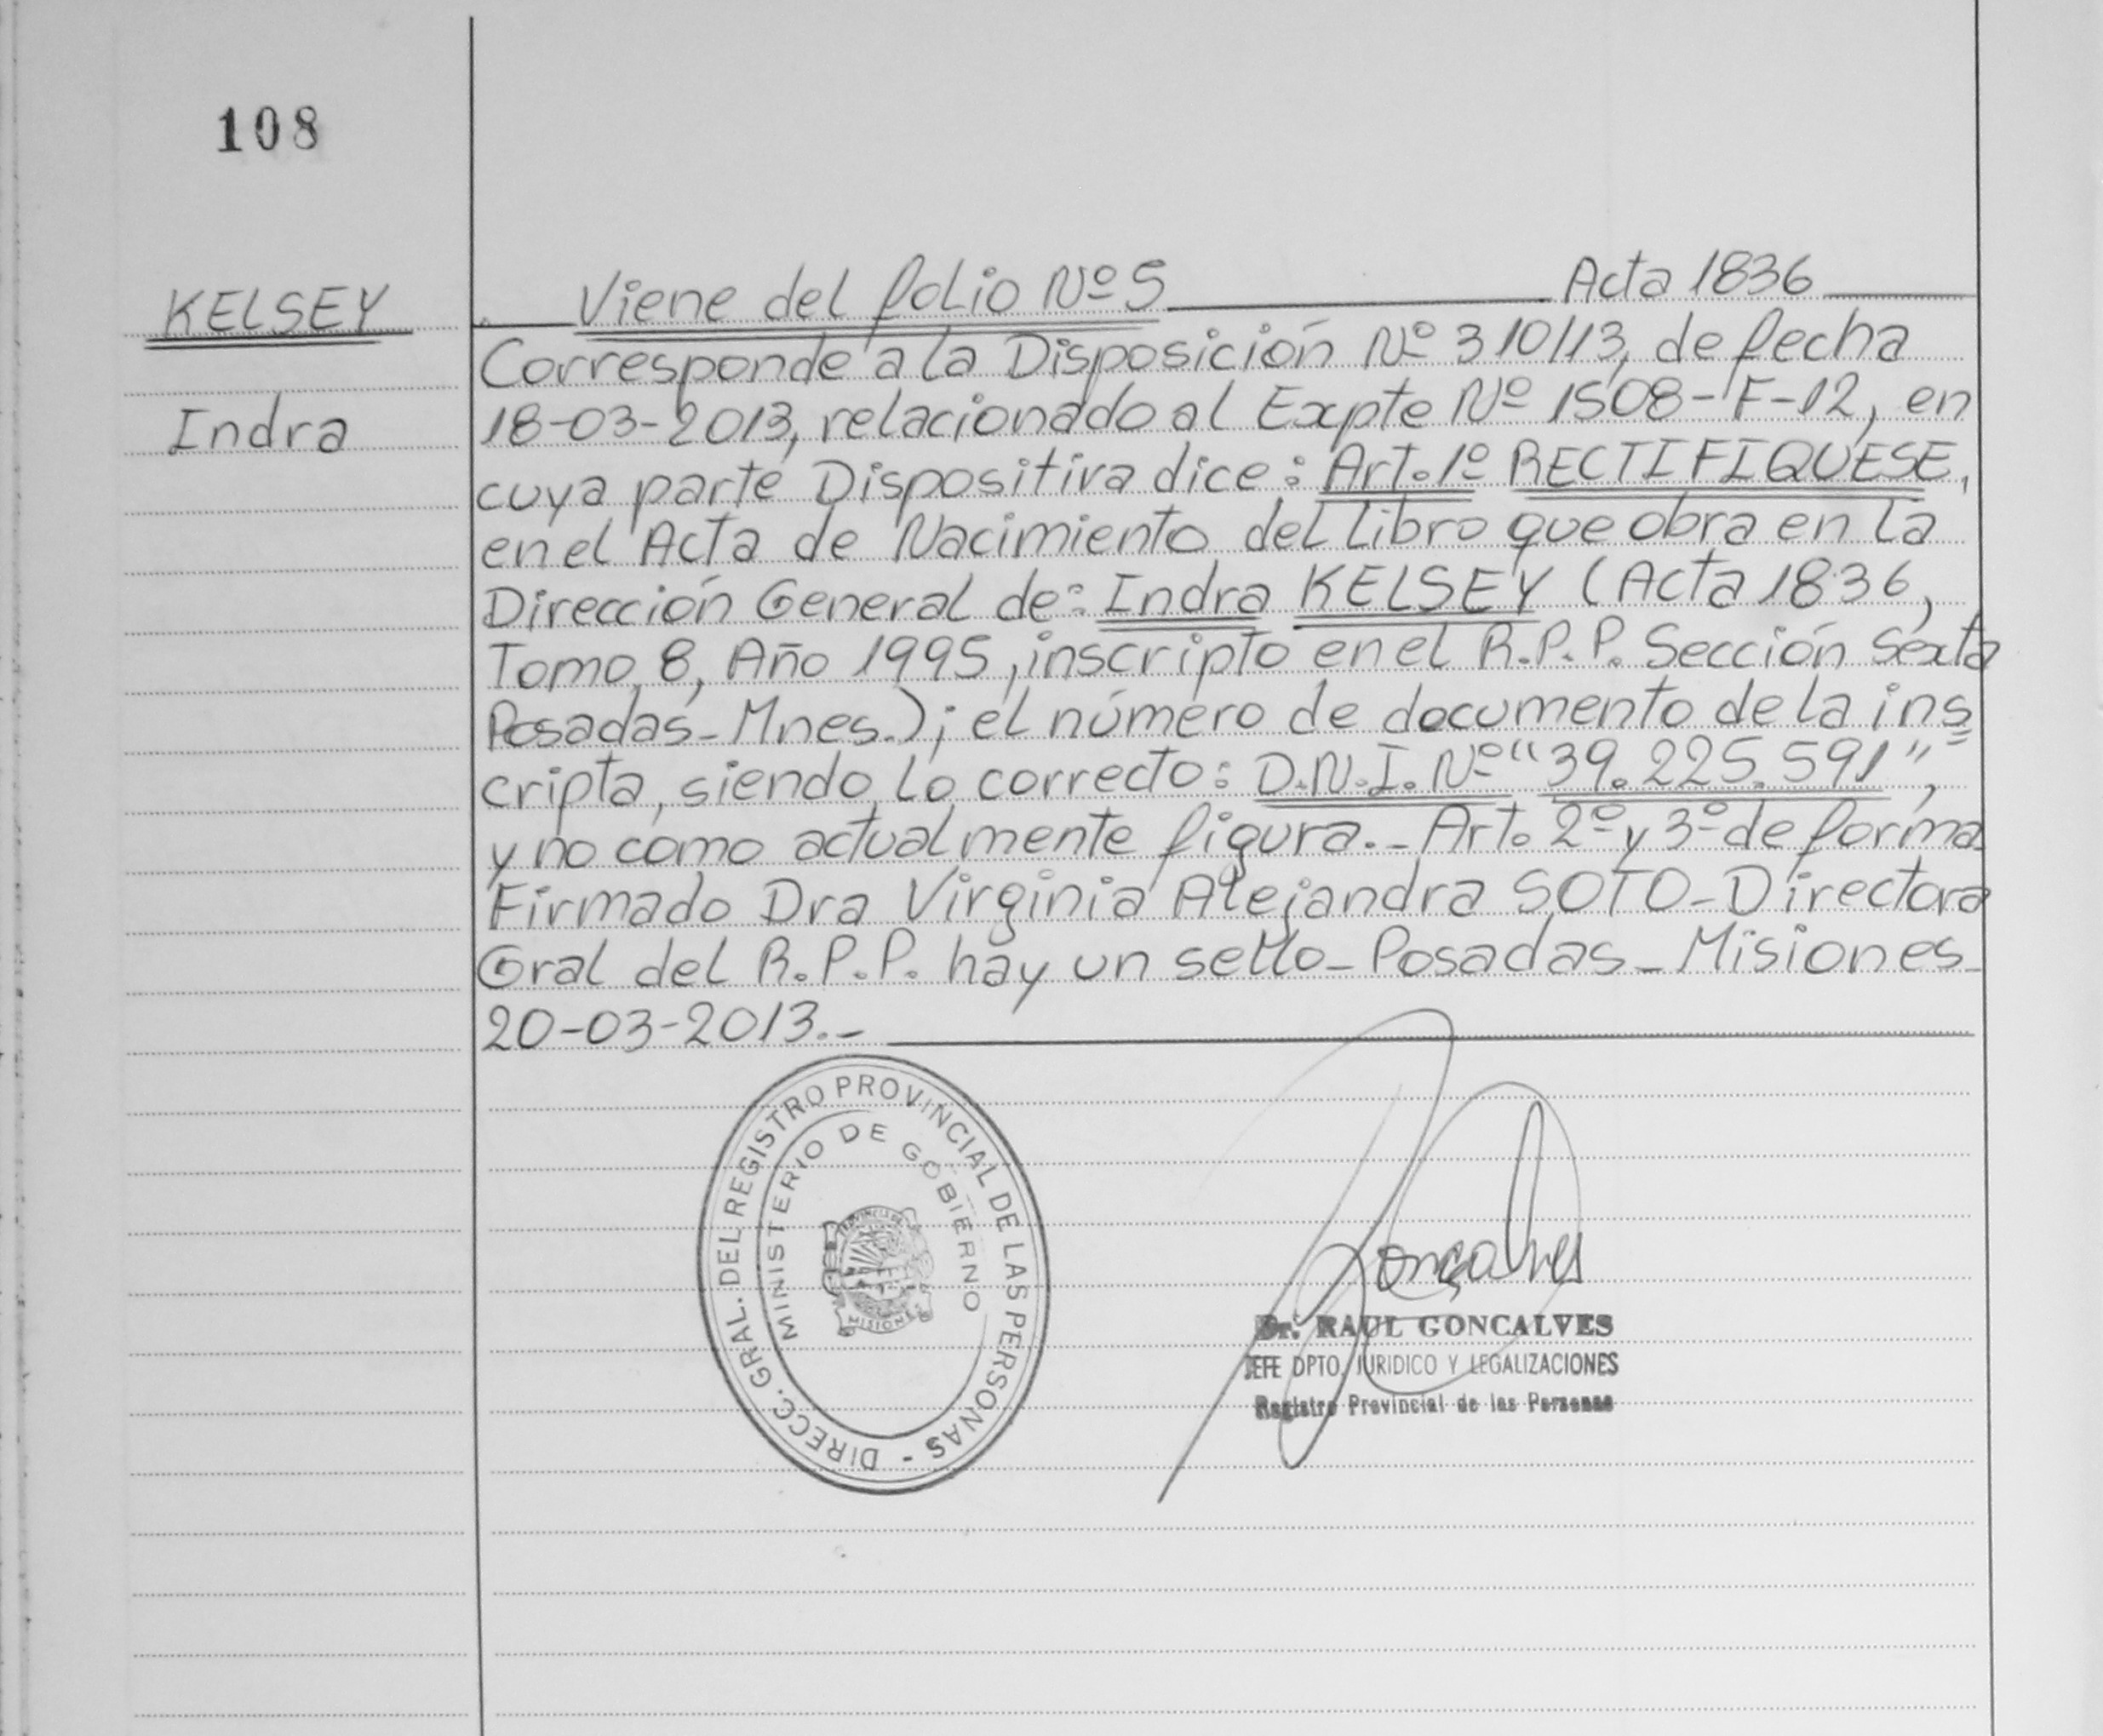 108
KELSEY
Indra
Viene del folio Nº 5 Acta 1836
Corresponde a la Disposición Nº 310/13, de fecha
18-03-2013, relacionado al Expte Nº 1508-F-12, en
cuya parte Dispositiva dice: Art. 1º RECTIFIQUESE,
en el Acta de Nacimiento del Libro que obra en la
Dirección General de: Indra KELSEY (Acta 1836,
Tomo 8, Año 1995, inscripto en el R.P.P. Sección Sexta
Posadas-Mnes.); el número de documento de la ins
cripta, siendo lo correcto: D.N.I. Nº "39.225.591",
y no como actualmente figura.- Art. 2º y 3º de forma
Firmado Dra Virginia Alejandra SOTO-Directora
Gral del R.P.P. hay un sello-Posadas-Misiones-
20-03-2013.-
DIRECC. GRAL. DEL REGISTRO PROVINCIAL DE LAS PERSONAS -
MINISTERIO DE GOBIERNO
PROVINCIA DE
MISIONES
Gonçalves
Dr. RAUL GONCALVES
JEFE DPTO. JURIDICO Y LEGALIZACIONES
Registro Provincial de las Personas